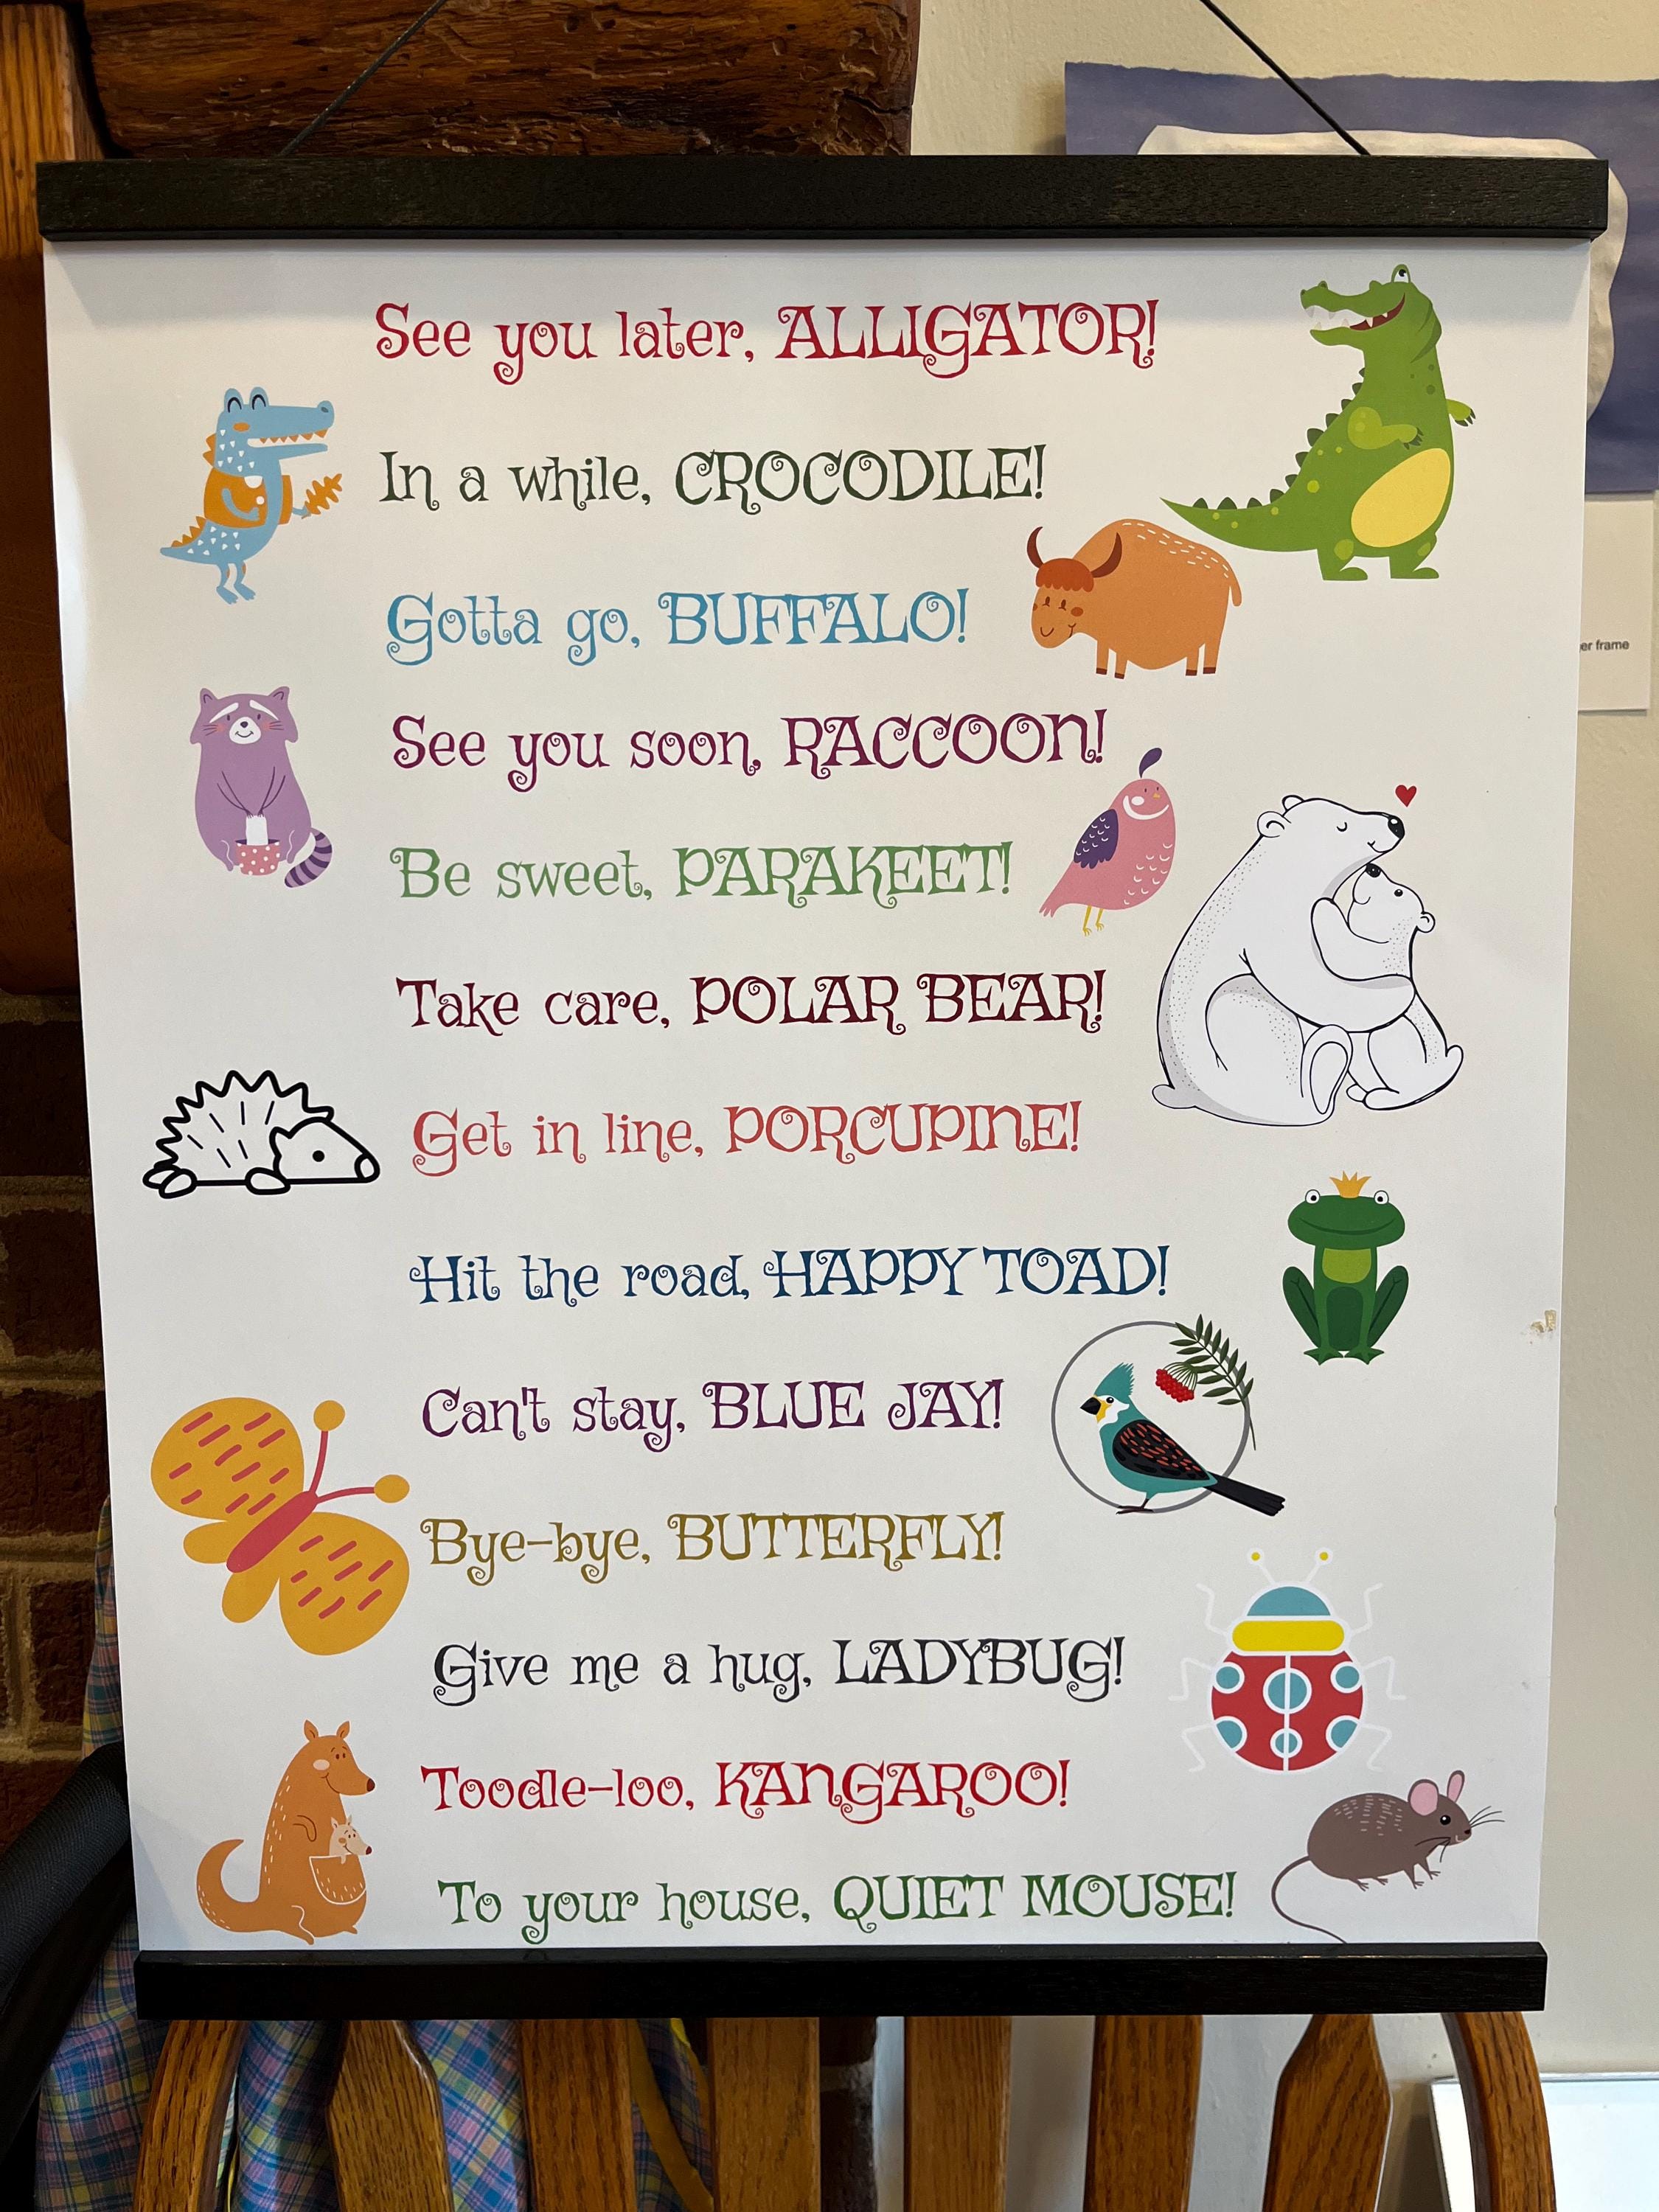 See you later, ALLIGATOR!
In a while, CROCODILE!
Gotta go, BUFFALO!
See you soon, RACCOON!
Be sweet, PARAKEET!
Take care, POLAR BEAR!
Get in line, PORCUPINE!
Hit the road, HAPPY TOAD!
Can't stay, BLUE JAY!
Bye-bye, BUTTERFLY!
Give me a hug, LADYBUG!
Toodle-loo, KANGAROO!
To your house, QUIET MOUSE!
frame